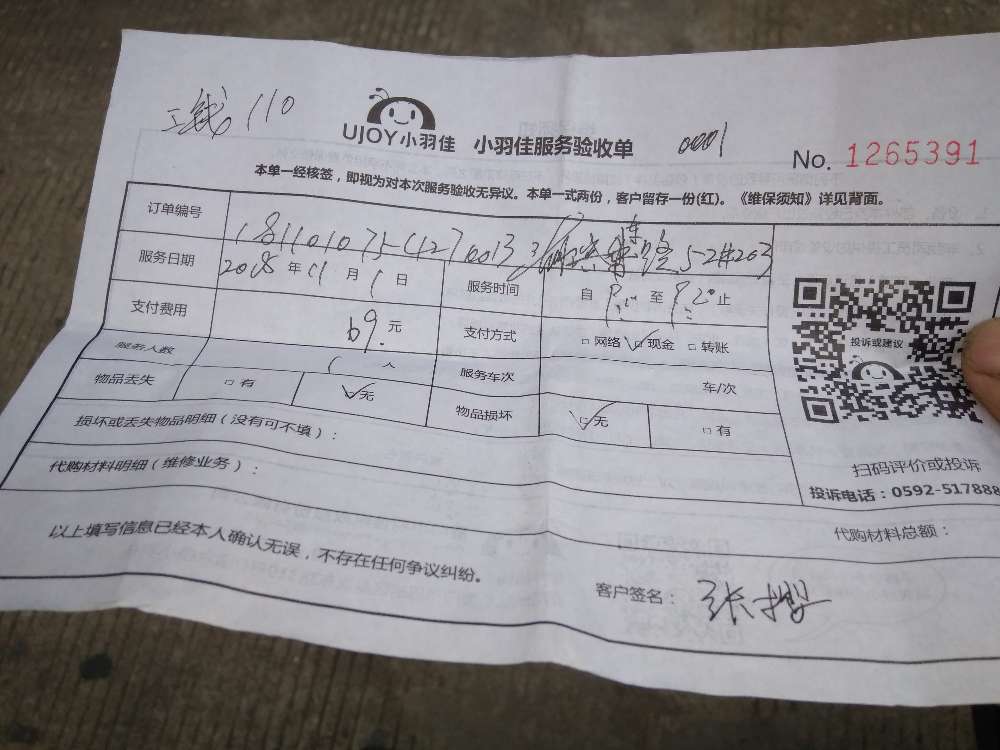 110
UJOY小羽佳 小羽佳服务验收单 0001 No. 1265391
本单一经核签，即视为对本次服务验收无异议。本单一式两份，客户留存一份(红)。《维保须知》详见背面。
订单编号 5-2#203
服务日期 2018 年 11 月 1 日 服务时间 自 至 止
支付费用 69. 元 支付方式 □ 网络 ☑ 现金 □ 转账
服务人数 1 人 服务车次 车/次
物品丢失 □ 有 ☑ 无 物品损坏 ☑ 无 □ 有
损坏或丢失物品明细（没有可不填）：
代购材料明细（维修业务）：
投诉或建议
扫码评价或投诉
投诉电话：0592-517888
代购材料总额：
以上填写信息已经本人确认无误，不存在任何争议纠纷。
客户签名： 张